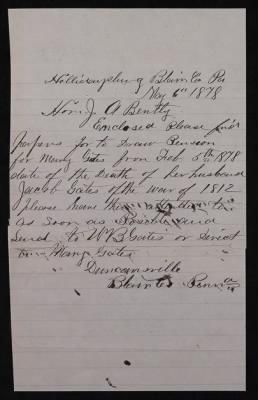 Hollidaysburg Blair Co Pa
May 6th 1878
Hon. J A Bently
Enclosed Please find
papers for to draw Pension
for Mary Gates from Feb 5th 1878
date of the death of her husband
Jacob Gates of the war of 1812
Please have this attended to
as soon as Possible and
send to W B Gates or direct
to Mary Gates
Duncansville
Blair Co Penna